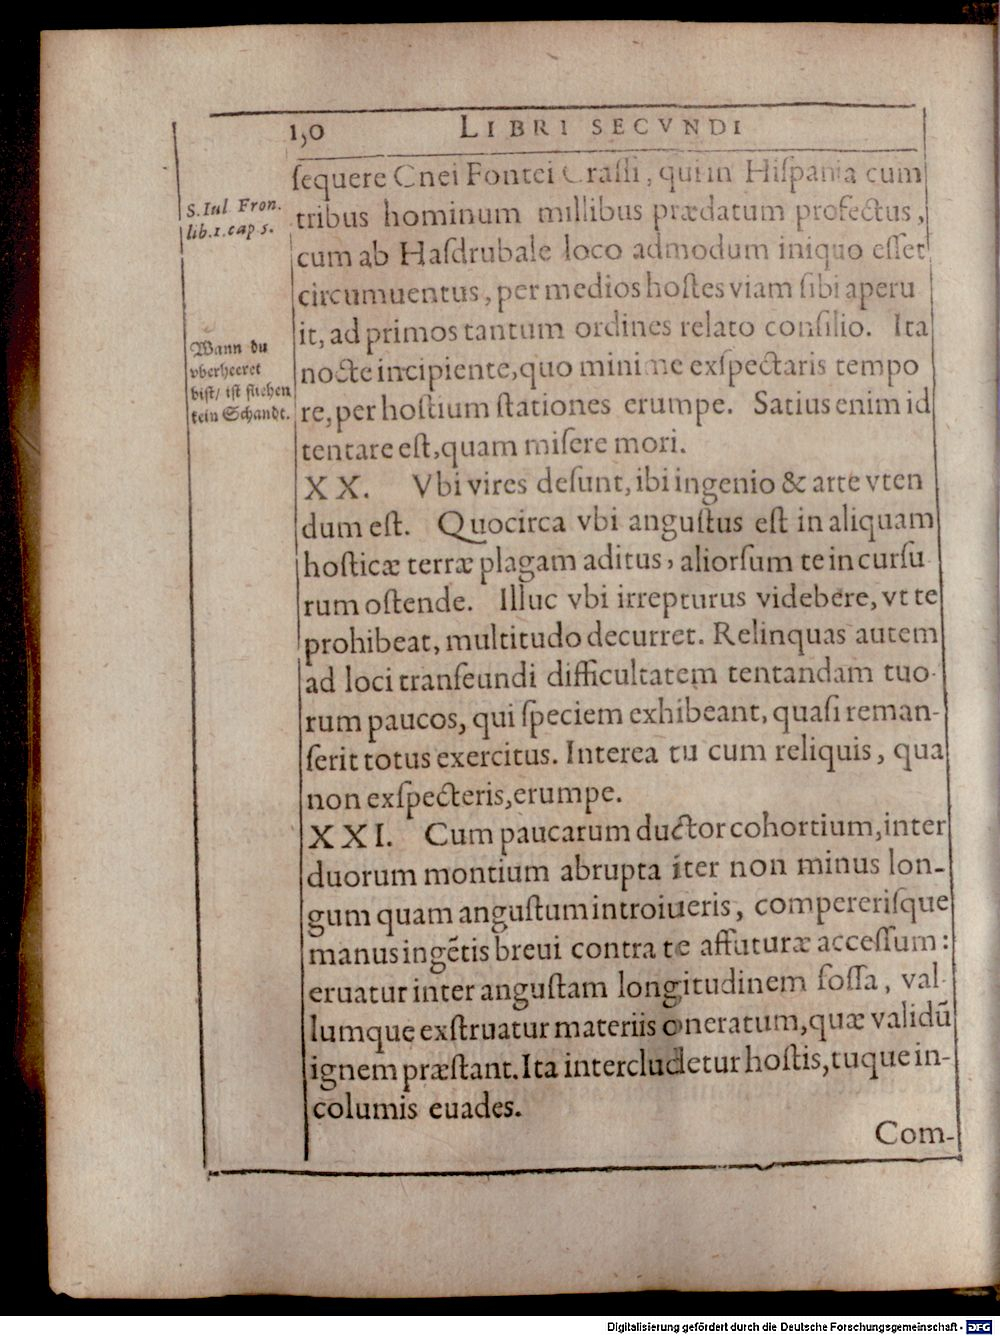 150
LIBRI SECVNDI
ſequere Cnei Fontei Craſſi, qui in Hiſpania cum
tribus hominum millibus prædatum profectus,
cum ab Haſdrubale loco admodum iniquo eſſet
circumuentus, per medios hoſtes viam ſibi aperu
it, ad primos tantum ordines relato conſilio. Ita
nocte incipiente, quo minime exſpectaris tempo
re, per hoſtium ſtationes erumpe. Satius enim id
tentare eſt, quam miſere mori.
S. Iul Fron.
lib. 1. cap 5.
Wann du
vberheeret
biſt/ iſt fliehen
kein Schandt.
XX. Vbi vires deſunt, ibi ingenio & arte vten
dum eſt. Quocirca vbi anguſtus eſt in aliquam
hoſticæ terræ plagam aditus, aliorſum te in curſu
rum oſtende. Illuc vbi irrepturus videbere, vt te
prohibeat, multitudo decurret. Relinquas autem
ad loci tranſeundi difficultatem tentandam tuo-
rum paucos, qui ſpeciem exhibeant, quaſi reman-
ſerit totus exercitus. Interea tu cum reliquis, qua
non exſpecteris, erumpe.
XXI. Cum paucarum ductor cohortium, inter
duorum montium abrupta iter non minus lon-
gum quam anguſtum introiueris, compereriſque
manus ingẽtis breui contra te affuturæ acceſſum:
eruatur inter anguſtam longitudinem foſſa, val-
lumque exſtruatur materiis oneratum, quæ validũ
ignem præſtant. Ita intercludetur hoſtis, tuque in-
columis euades.
Com-
Digitalisierung gefördert durch die Deutsche Forschungsgemeinschaft - DFG